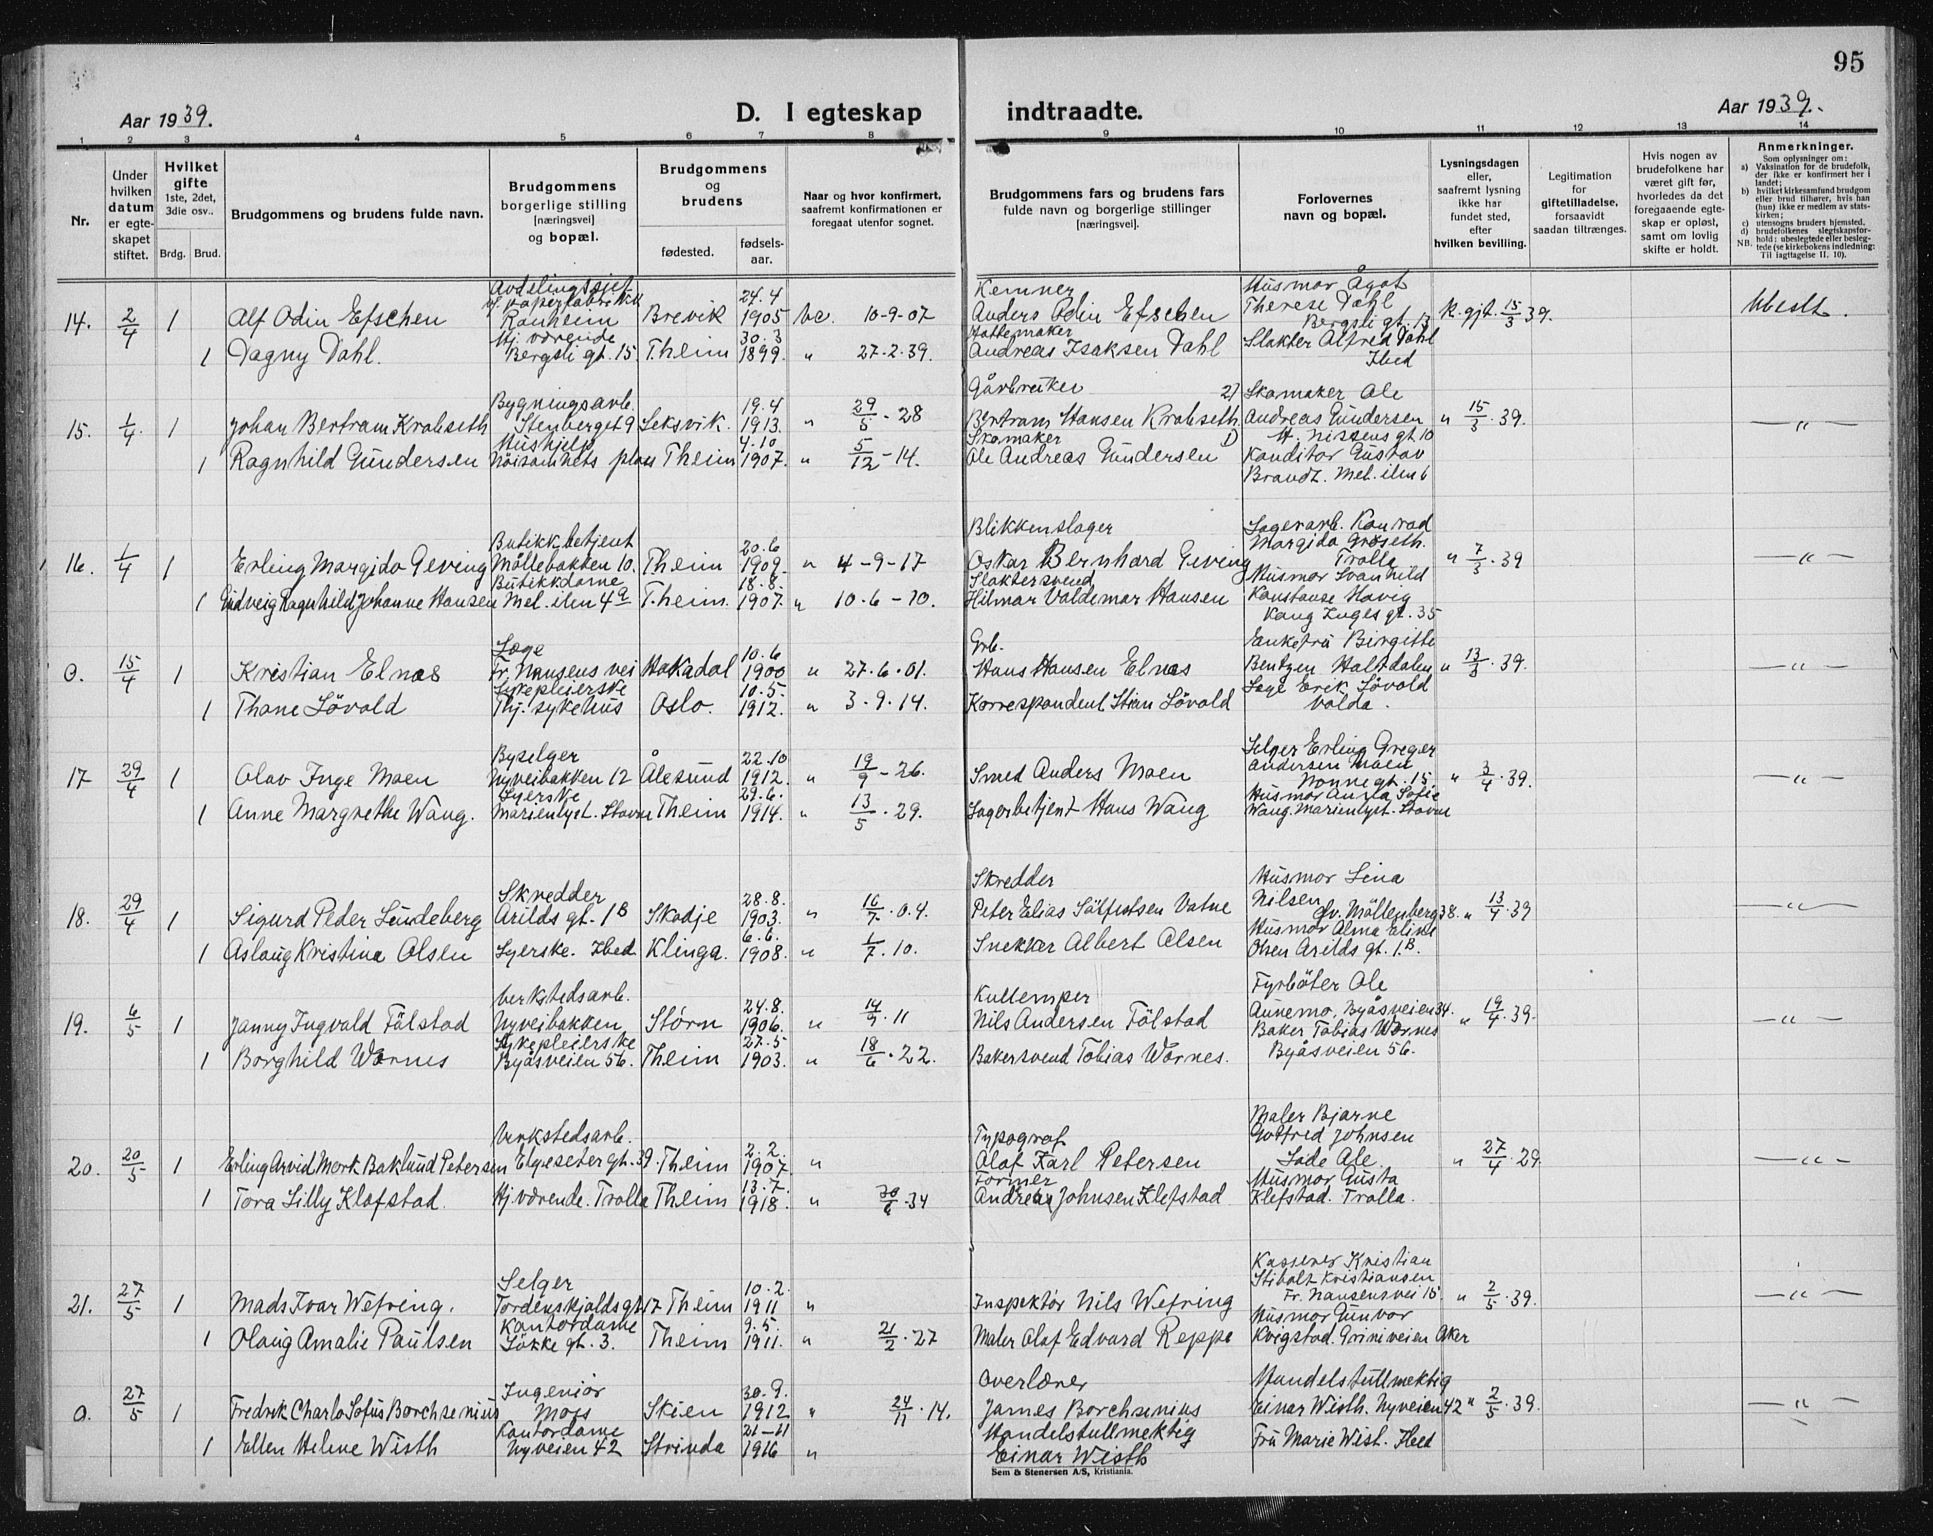 95
Aar 1939.
D. I egteskap indtraadte.
Aar 1939.
1 2 3 4 5 6 7 8 9 10 11 12 13 14
Nr.
Under hvilken datum er egteskapet stiftet.
Hvilket gifte 1ste, 2det, 3die osv..
Brdg. Brud.
Brudgommens og brudens fulde navn.
Brudgommens borgerlige stilling [næringsvei] og bopæl.
Brudgommens og brudens
fødested. fødselsaar.
Naar og hvor konfirmert, saafremt konfirmationen er foregaat utenfor sognet.
Brudgommens fars og brudens fars fulde navn og borgerlige stillinger [næringsvei].
Forlovernes navn og bopæl.
Lysningsdagen eller, saafremt lysning ikke har fundet sted, efter hvilken bevilling.
Legitimation for giftetilladelse, forsaavidt saadan tiltrænges.
Hvis nogen av brudefolkene har været gift før, hvorledes da det foregaaende egteskap er opløst, samt om lovlig skifte er holdt.
Anmerkninger.
Som oplysninger om:
a) Vaksination for de brudefolk, der ikke er konfirmert her i landet;
b) hvilket kirkesamfund brudgom eller brud tilhører, hvis han (hun) ikke er medlem av statskirken;
c) utensogns bruders hjemsted.
d) brudefolkenes slegtskapsforhold; ubeslegtede eller beslegtede (se kirkebokens indledning: Til iagttagelse II. 10).
NB.
Avdelingssjef Kemner Husmor Ågot
24.4
14. 2/4 1 Alf Odin Efschen Ranheim Brevik 1905 10-9-07 Anders Odin Efschen Therese Dahl Bergsli gt. 13 K. gjt. 15/3 39. Ubeslt.
Hj. værende 30.3
1 Dagny Dahl. Bergsli gt. 15 T.heim 1899. " 27-2.39. Andreas Isaksen Dahl Slakter Alfred Dahl Ibed
Bygningsarb. 19.4 Gårbruker 2) Skomaker Ole
15. 1/4 1 Johan Bertram Krabseth Stenberget 9 Leksvik. 1913. " 29/5 - 28 Bertram Hansen Krabseth Andreas Gundersen " 15/3 . 39. —"—
Hushjelp 4.10 Skomaker 1) H. Nissens gt 10
1 Ragnhild Gundersen Nöisomhets plass T.heim 1907. " 5/12 - 14. Ole Andreas Gundersen Konditor Gustav
Brandt. Mel. ilen 6
Butikkbetjent 20.6 Blikkenslager Lagerarb. Konrad
Margido Gröseth.
16. 1/4 1 Erling Margido Geving Möllebakken 10. T.heim 1909. " 4-9-17 Oskar Bernhard Geving Trolla " 7/3 . 39 —"—
Butikkdame 18.8. Slaktersvend Husmor Svanhild
1 Eidveig Ragnhild Johanne Hansen Mel. ilen 49 T.heim. 1907. " 10.6-10. Hilmar Valdemar Hansen Konstanse Havig
Kong Inges gt. 35
Læge 10.6 Grb. Enkefru Birgitte
0. 15/4 1 Kristian Elnæs Fr. Nansens vei Hakadal 1900 " 27.6.01. Hans Hansen Elnæs Bentzen Haltdalen " 13/3 . 39. —"—
Sykepleierske 10.5. Læge Erik Lövold
1 Thone Lövold Thj. sykehus Oslo. 1912. " 3.9.14. Korrespondent Stian Lövold Volda.
Byselger 22.10 Selger Erling Greger
Andersen Moen
17 29/4 1 Olav Inge Moen Nyveibakken 12 Ålesund 1912. " 19/9 - 26. Smed Anders Moen Nonnegt. 15. " 3/4 . 39. —"—
Syerske 29.6. Husmor Anna Sofie
1 Anne Margrethe Wang. Marienlyst. Stavne T.heim 1914. " 13/5 . 29. Lagerbetjent Hans Wang Wang. Marienlyst. Stavne
Skredder 28.8. Skredder Husmor Lina
Nilsen
18. 29/4 1 Sigurd Peder Lundeberg Arilds gt. 1B Skodje 1903. " 16/7 . 04. Peter Elias Vatne Öv. Möllenberg 38. " 13/4 . 39 —"—
6.6. Husmor Alma Eline
1 Aslaug Kristina Olsen Syerske. Ibed Klinga. 1908. " 1/7 . 10. Snekker Albert Olsen Olsen Arilds gt. 1B.
Verkstedsarb. 24.8. Kullemper Fyrböter Ole
19. 6/5 1 Janny Ingvald Fölstad Nyveibakken Störn 1906. " 14/9 . 11 Nils Andersen Fölstad Aunemo. Byåsveien 34. " 19/4 . 39. —"—
Sykepleierske 27.5 Baker Tobias Wornes
1 Borghild Wornes Byåsveien 56. T.heim 1903. " 18/6 . 22. Bakersvend Tobias Wornes. Byåsveien 56.
Verkstedsarb. 2.2. Typograf Maler Bjarne
Gotfred Johnsen
20. 20/5 1 Erling Arvid Mork Baklund Petersen Elgeseter gt. 39. T.heim 1907 " Olaf Karl Petersen Lade Ale. " 27/4 . 29. —"—
13.7. Former Husmor Gusta
1 Tora Lilly Klefstad. Hj værende. Trolla T.heim 1918. " 34 Andreas Johnsen Klefstad Klefstad. Trolla.
Selger 10.2. Kasserer Kristian
Stibolt Kristiansen
21. 27/5 1 Mads Ivar Wefring. Tordenskjoldsgt. 17 T.heim 1911 " Inspektör Nils Wefring Fr. Nansensvei 15 " 2/5 . 39. —"—
Kontordame 9.5. Husmor Gunvor
1 Olaug Amalie Paulsen Lökke gt. 3. T.heim 1911. " 21/2 . 27 Maler Olaf Edvard Reppe Kvigstad. Griniveien Aker
Ingeniör 30.9. Overlærer Handelsfullmektig
0. 27/5 1 Fredrik Charlo Sofus Borchsenius Moss Skien 1912 " 24/11 . 14. James Borchsenius Einar Wisth. Nyveien 42 " 2/5 . 39. —"—
Kontordame 21-11 Handelsfullmektig
1 Ellen Helene Wisth Nyveien 42 Strinda 1916 " Einar Wisth Fru Marie Wist. Ibed
Sem & Stenersen A/S, Kristiania.